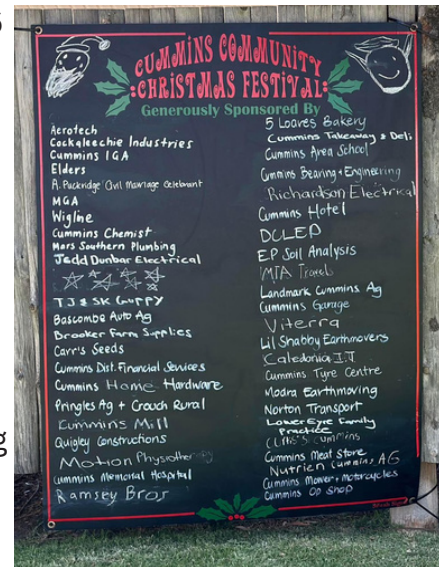 CUMMINS COMMUNITY
CHRISTMAS FESTIVAL:
Generously Sponsored By
Aerotech
Cockaleechie Industries
Cummins IGA
Elders
A. Puckridge Civil Marriage Celebrant
MGA
Wigline
Cummins Chemist
Mars Southern Plumbing
Jedd Dunbar Electrical
TJ & SK Guppy
Bascombe Auto Ag
Brooker Farm Supplies
Carr's Seeds
Cummins Dist. Financial Services
Cummins Home Hardware
Pringles Ag + Crouch Rural
Cummins Mill
Quigley Constructions
Motion Physiotherapy
Cummins Memorial Hospital
Ramsey Bros
5 Loaves Bakery
Cummins Takeaway & Deli
Cummins Area School
Cummins Bearing + Engineering
Richardson Electrical
Cummins Hotel
DCLEP
EP Soil Analysis
MTA Travel
Landmark Cummins Ag
Cummins Garage
Viterra
Lil Shabby Earthmovers
Caledonia IT
Cummins Tyre Centre
Modra Earthmoving
Norton Transport
Lower Eyre Family
Practice
Cummins
Cummins Meat Store
Nutrien Cummins AG
Cummins Mower + Motorcycles
Cummins Op Shop